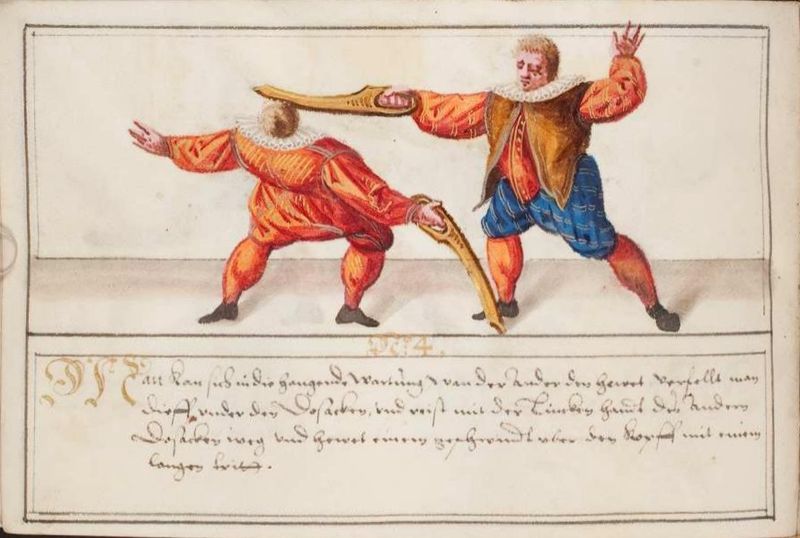 No 4.
Man kan sich in die hangende Wartung, wan der Ander den hewet, verfellt man
dieff, vnder den Dosacken, vnd reist mit der Lincken handt des Andern
Dosacken weg vnd hewet einem geschwindt vber den Kopff mit einem
langen tritt.